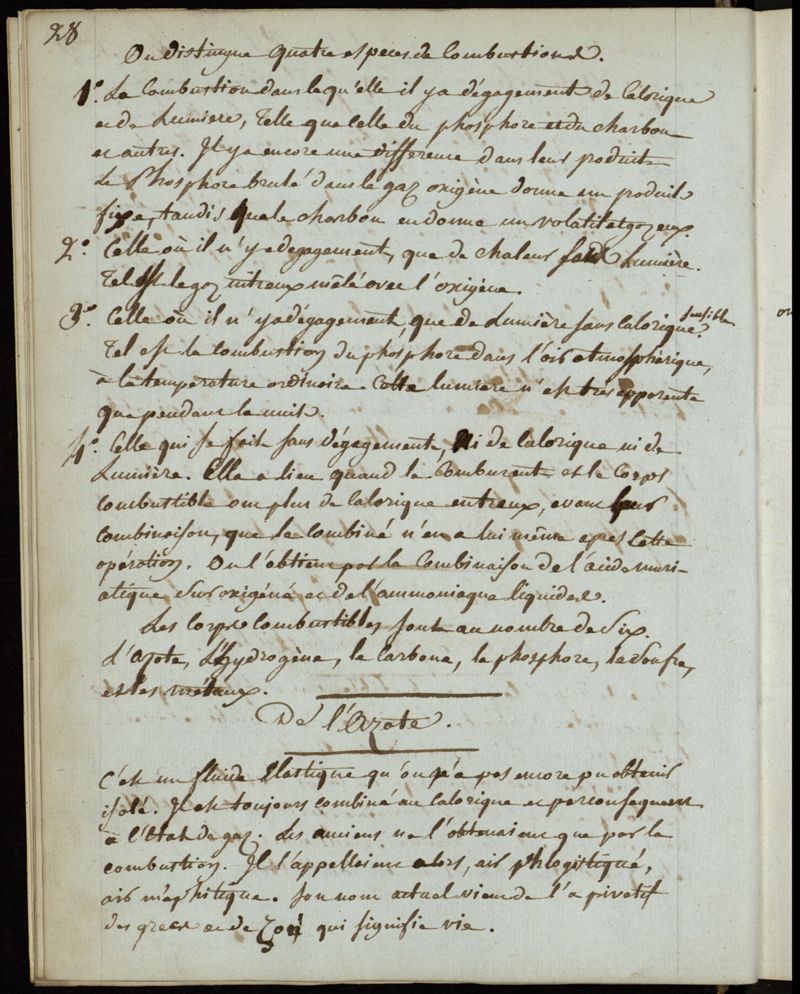 28
On distingue quatre especes de Combustions.
1°. La Combustion dans laqu'elle il y a dégagement de Calorique
et de Lumiere, Telle que Celle du phosphore et du charbon
et autres. Il y a encore une difference dans leur produit
Le Phosphore brulé dans le gaz oxigène donne un produit
fixe, tandis que le charbon en donne un volatil et gazeux.
2°. Celle où il n'y a degagement, que de chaleur sans Lumière.
Tel est le gaz nitreux mêlé avec l'oxigène.
3°. Celle où il n'y a dégagement, que de Lumière sans Calorique sensible.
Tel est la Combustion du phosphore dans l'air atmosphèrique,
à la température ordinaire. Cette lumiere n'est très apparente
que pendant la nuit.
4°. Celle qui se fait sans dégagement, Ni de Calorique ni de
Lumière. Elle a lieu quand le Comburent et le Corps
Combustible ont plus de Calorique entreux, avant leur
Combinaison, que le Combiné n'en a lui même après Cette
opération. On l'obtient par la Combinaison de l'acide muri-
atique Suroxigéné et de l'ammoniaque liquides.
Les Corps Combustibles sont au nombre de Six.
L'azote, L'hydrogène, le Carbone, le phosphore, le Soufre,
et les métaux.
De l'Azote.
C'est un fluide Elastique qu'on n'a pas encore pu obtenir
isolé. Il est toujours combiné au Calorique et parconséquent
à l'Etat de gaz. Les anciens ne l'obtenaient que par la
combustion. Ils l'appelloient alors, air phlogistiqué,
air méphitique. Son nom actuel vient de l'a privatif
des grecs et de ζοη qui signifie vie.